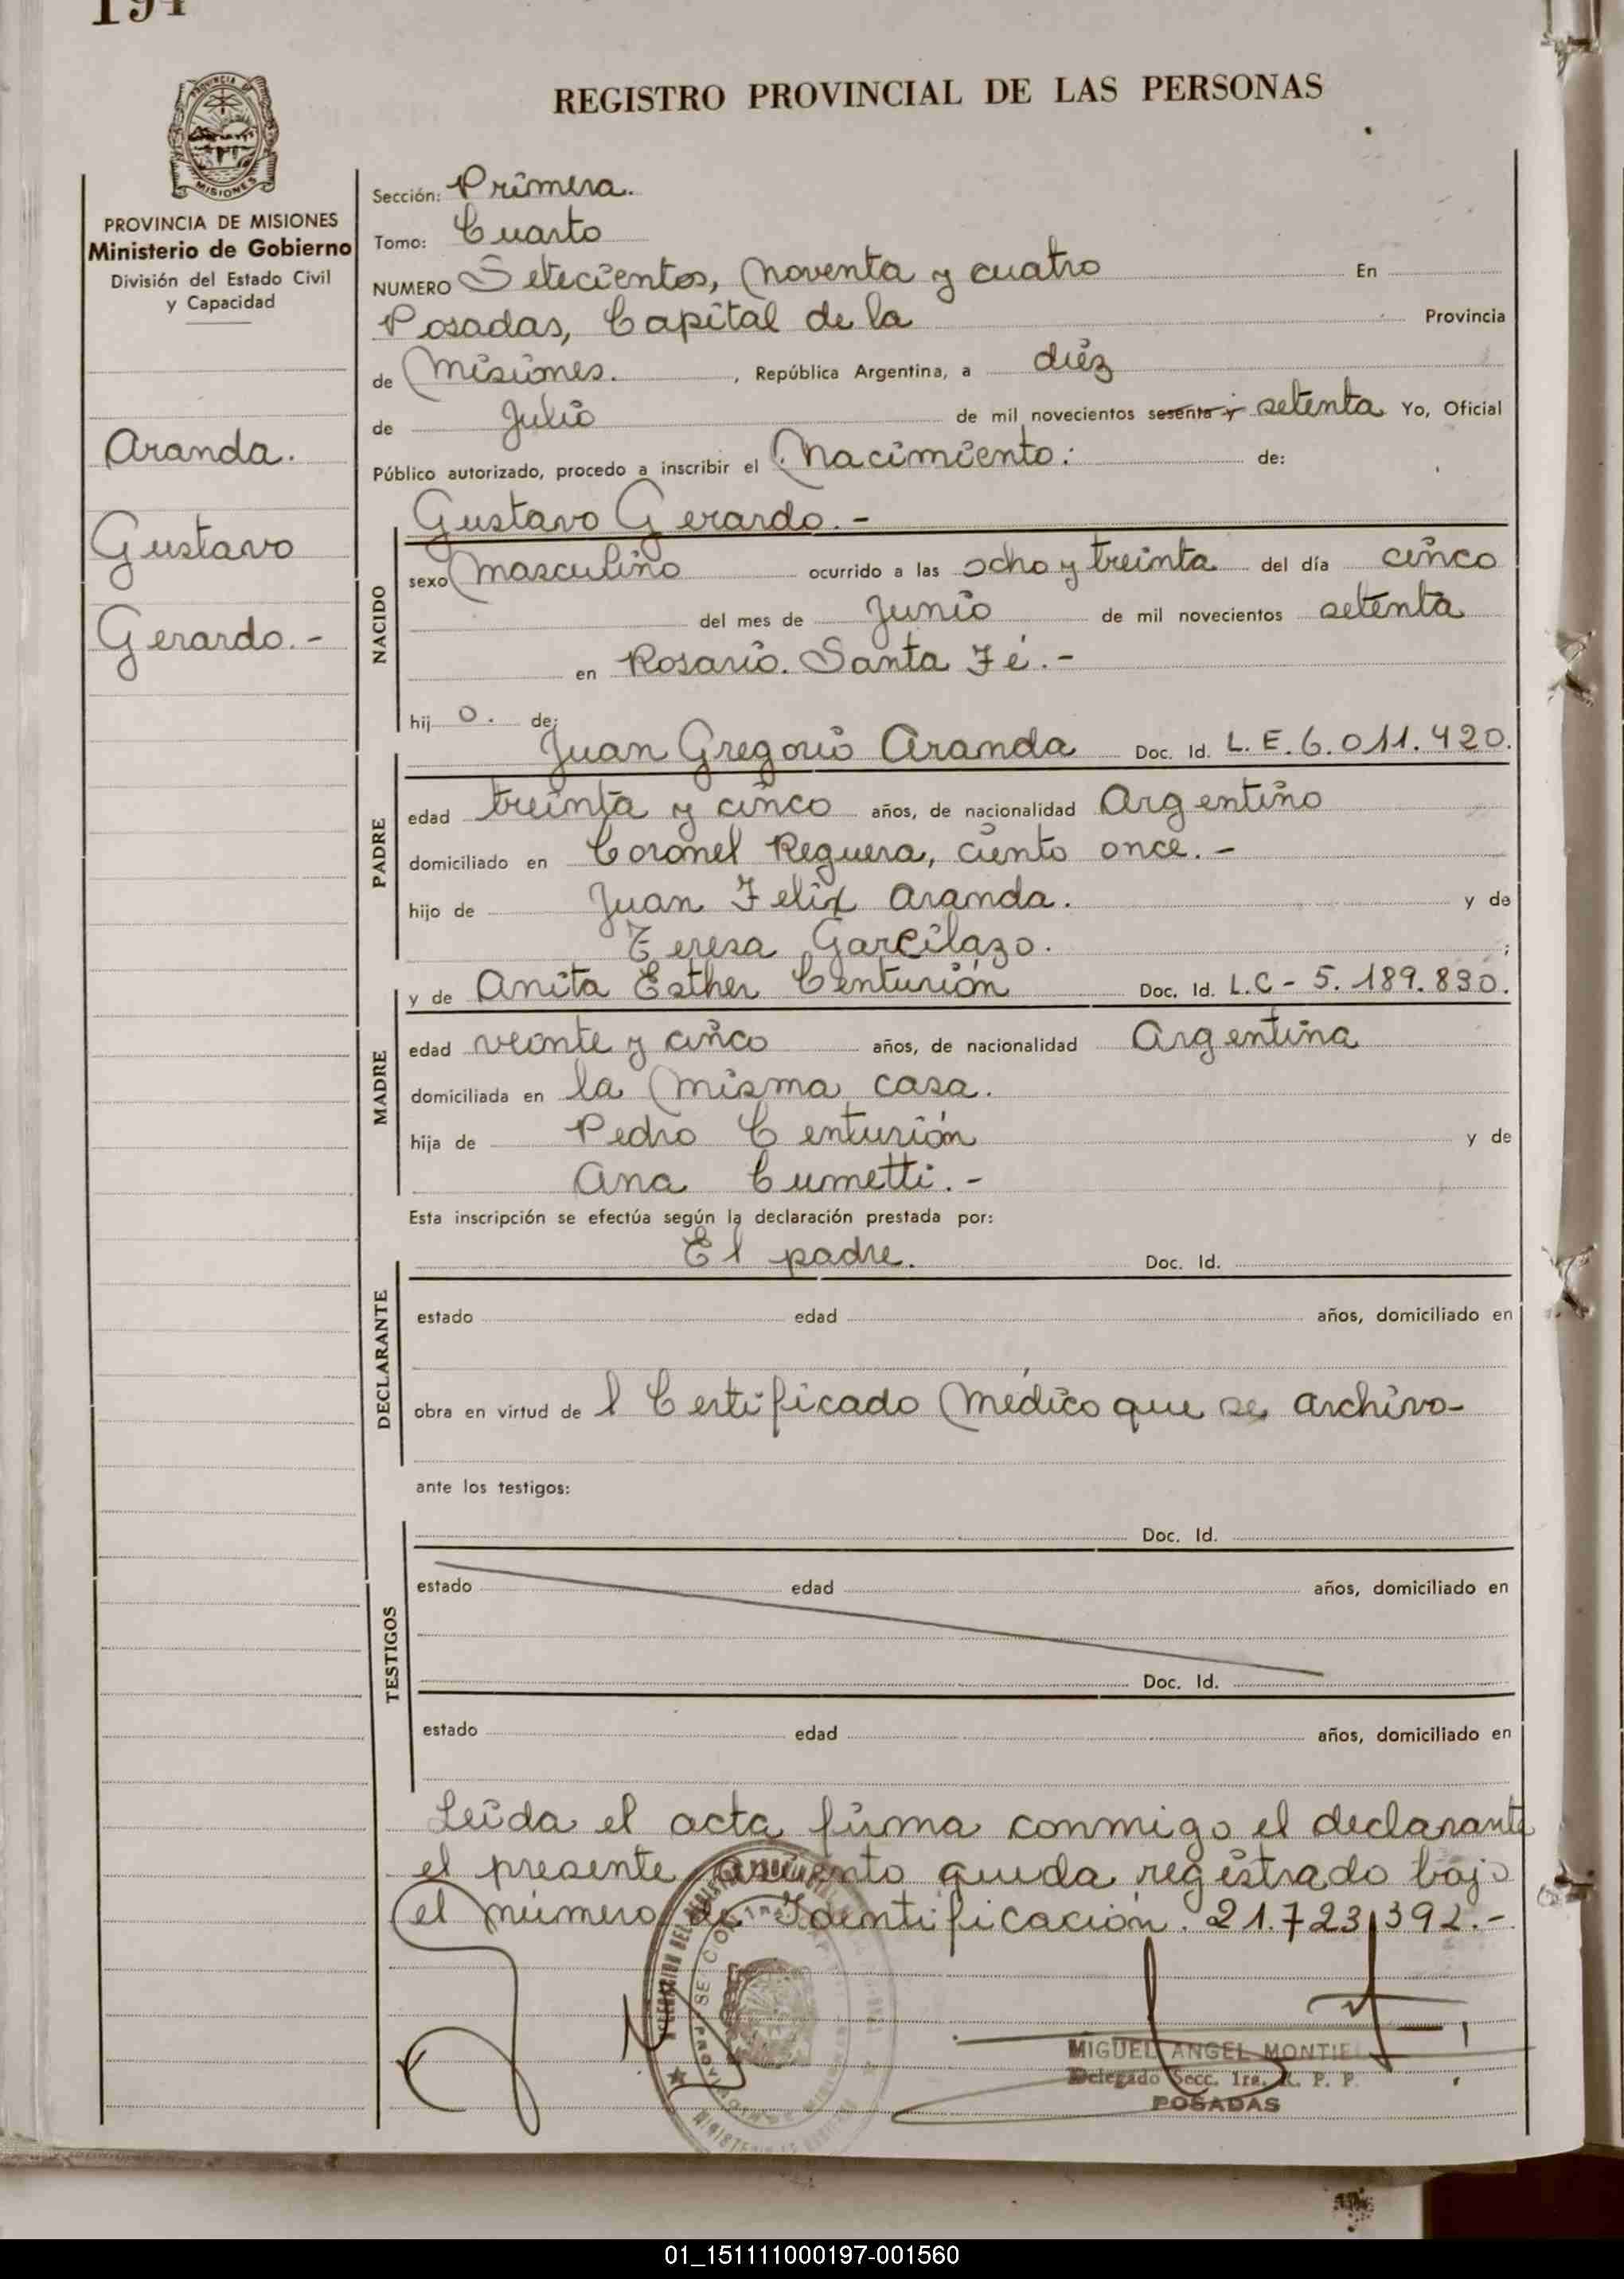 194
REGISTRO PROVINCIAL DE LAS PERSONAS
PROVINCIA DE MISIONES
Ministerio de Gobierno
División del Estado Civil
y Capacidad
Aranda.
Gustavo
Gerardo.-
Sección: Primera.
Tomo: Cuarto
NUMERO Setecientos, Noventa y cuatro En
Posadas, Capital de la Provincia
de Misiones. , República Argentina, a diéz
de Julio de mil novecientos sesenta y setenta Yo, Oficial
Público autorizado, procedo a inscribir el Nacimiento: de:
Gustavo Gerardo.-
NACIDO
sexo masculino ocurrido a las ocho y treinta del día cinco
del mes de Junio de mil novecientos setenta
en Rosario. Santa Fé.-
hij o. de:
Juan Gregorio Aranda Doc. Id. L.E. 6.011.420.
PADRE
edad treinta y cinco años, de nacionalidad Argentino
domiciliado en Coronel Reguera, ciento once.-
hijo de Juan Felix Aranda. y de
Teresa Garcilazo. ;
y de Anita Esther Centurión Doc. Id. L.C- 5.189.830.
MADRE
edad veinte y cinco años, de nacionalidad Argentina
domiciliada en la misma casa.
hija de Pedro Centurión y de
Ana Cumetti.-
Esta inscripción se efectúa según la declaración prestada por:
El padre. Doc. Id.
DECLARANTE
estado edad años, domiciliado en
obra en virtud de l Certificado Médico que se archiva-
ante los testigos:
Doc. Id.
TESTIGOS
estado edad años, domiciliado en
Doc. Id.
estado edad años, domiciliado en
Leída el acta firma conmigo el declarante
el presente asiento queda registrado bajo
el número de Identificación. 21.723.392.-
MIGUEL ANGEL MONTIEL
Delegado Secc. 1ra. R. P. P.
POSADAS
01_151111000197-001560